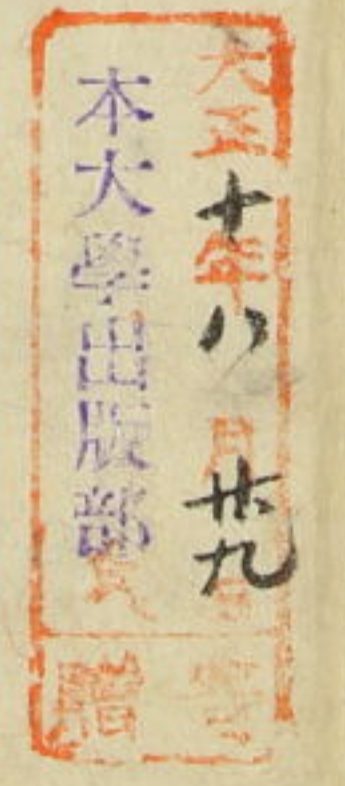 大正十年八月廿九日
本大學出版部氏
寄贈